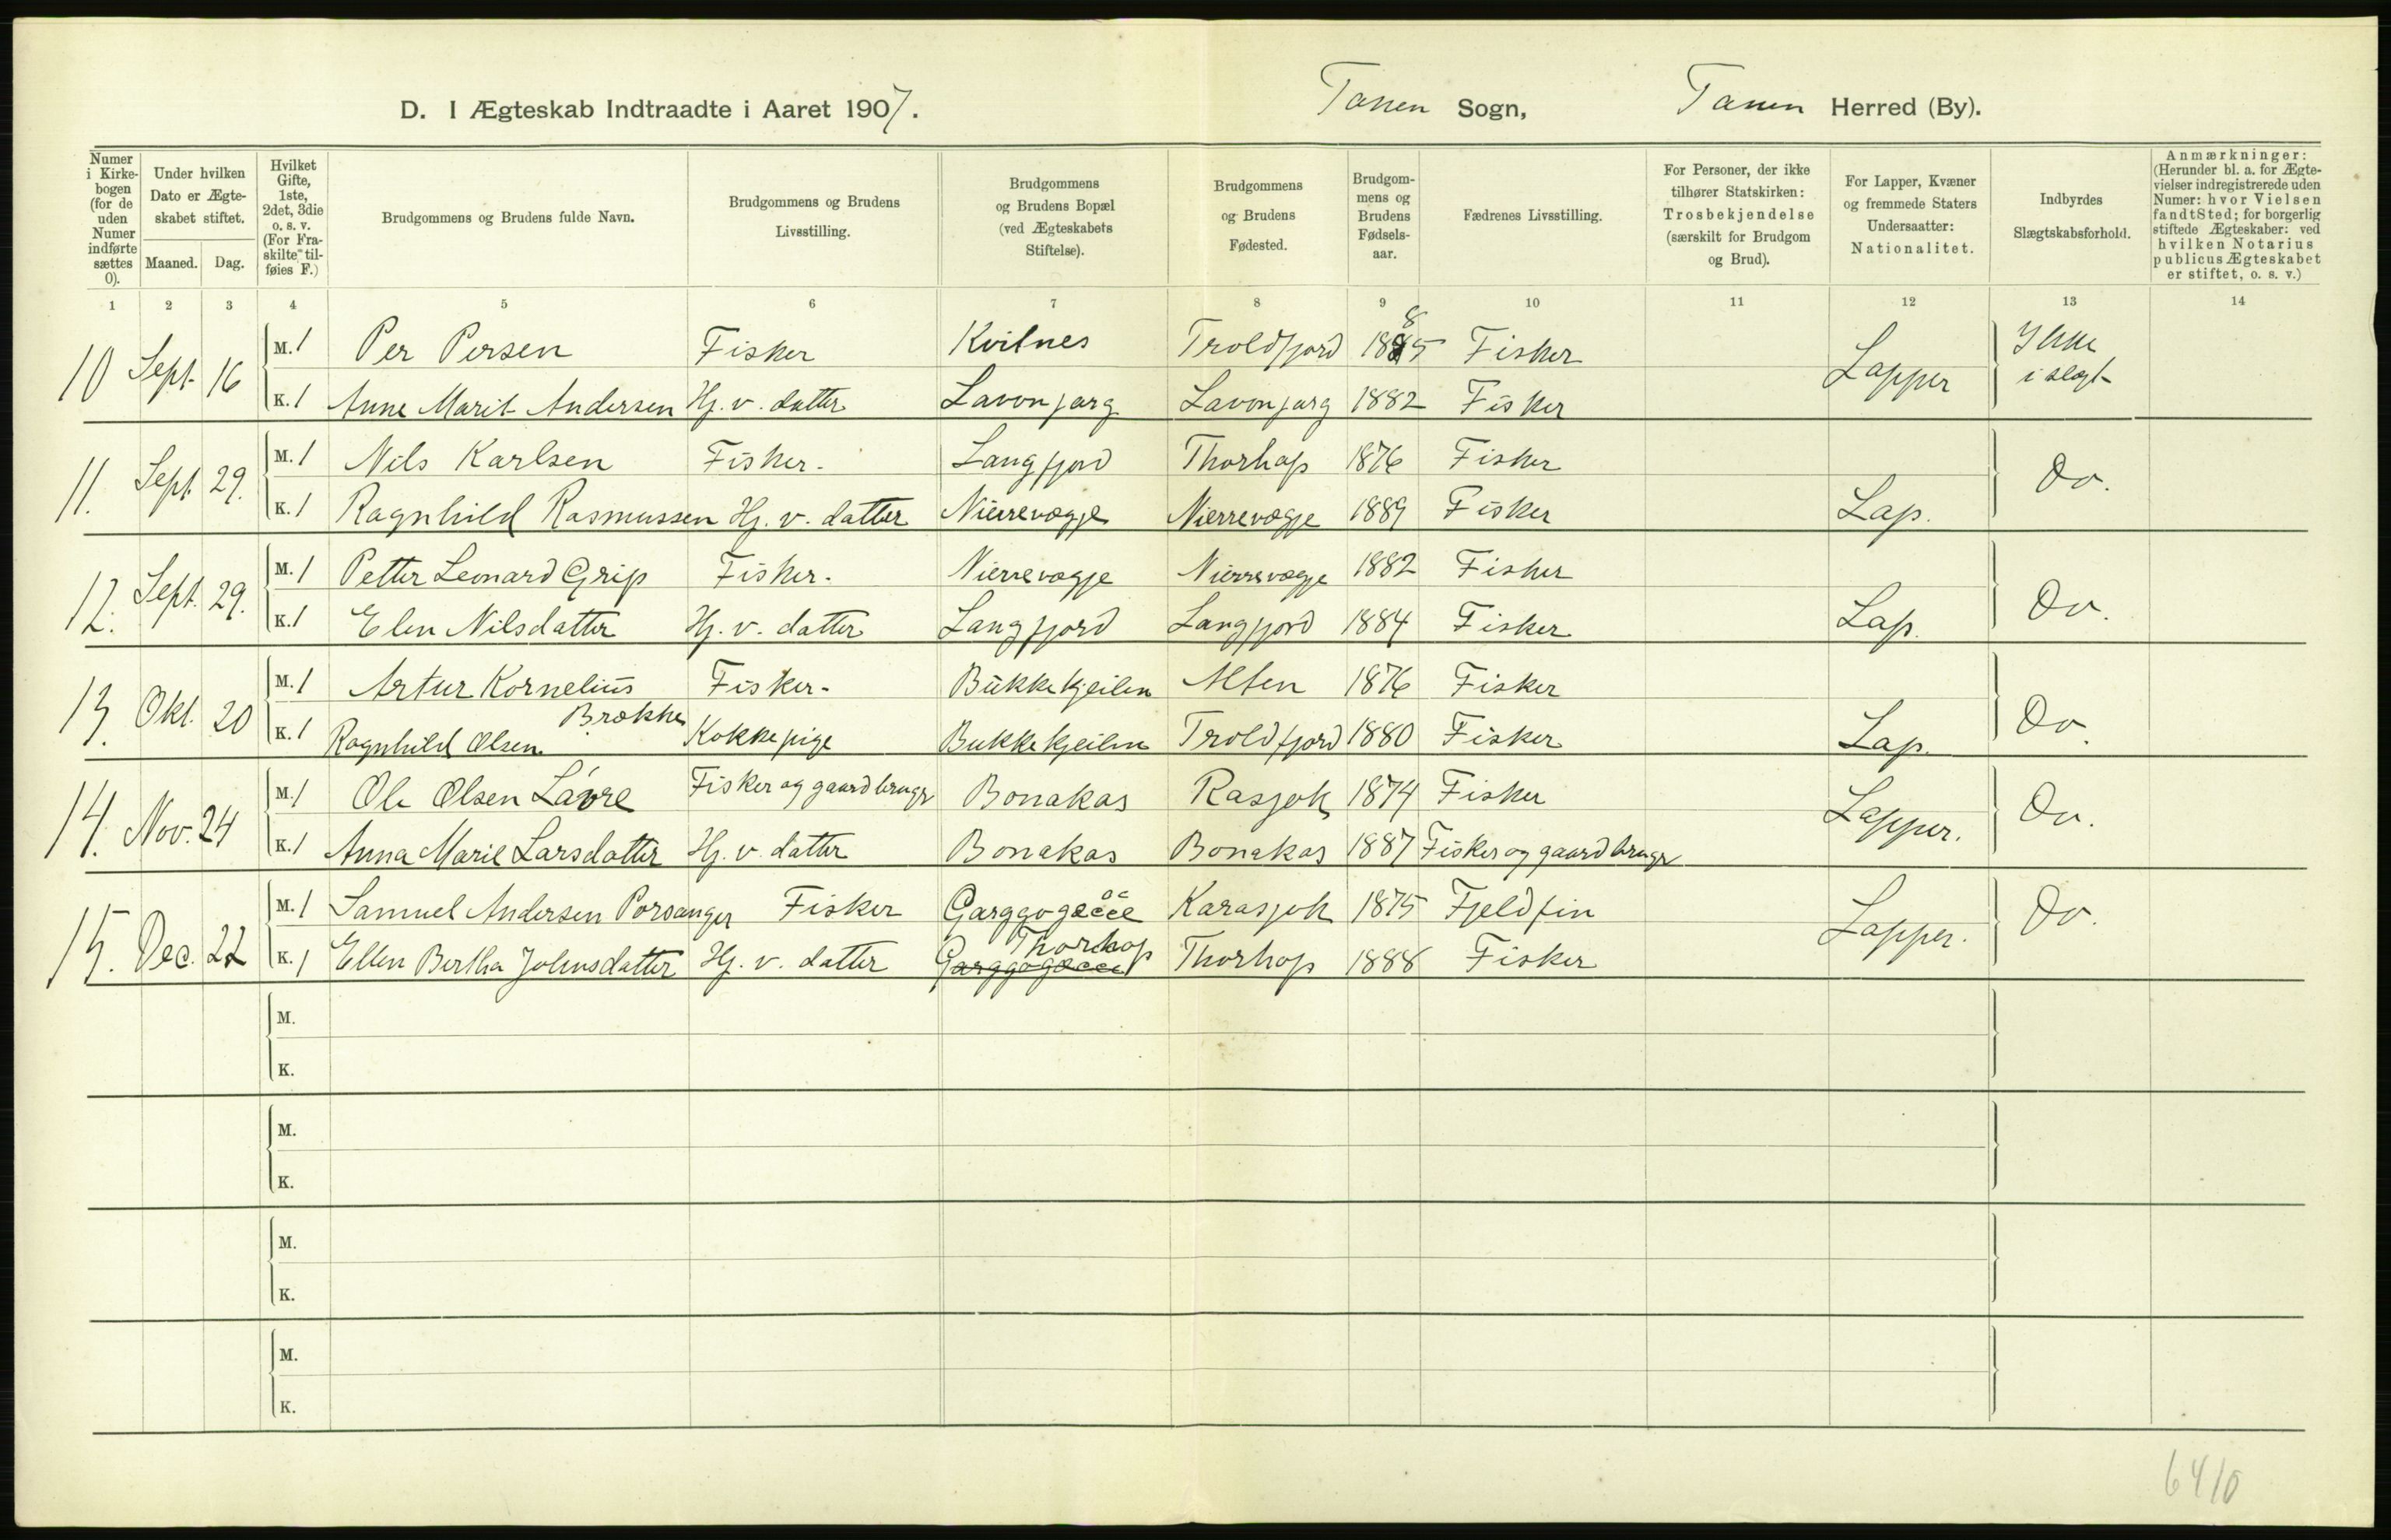 D. I Ægteskab Indtraadte i Aaret 1907. Tanen Sogn, Tanen Herred (By).
Numer i Kirke-bogen (for de uden Numer indførte sættes 0).
Under hvilken Dato er Ægte-skabet stiftet.
Maaned. Dag.
Hvilket Gifte, 1ste, 2det, 3die o. s. v. (For Fra-skilte til-føies F.)
Brudgommens og Brudens fulde Navn.
Brudgommens og Brudens Livsstilling.
Brudgommens og Brudens Bopæl (ved Ægteskabets Stiftelse).
Brudgommens og Brudens Fødested.
Brudgom-mens og Brudens Fødsels-aar.
Fædrenes Livsstilling.
For Personer, der ikke tilhører Statskirken: Trosbekjendelse (særskilt for Brudgom og Brud).
For Lapper, Kvæner og fremmede Staters Undersaatter: Nationalitet.
Indbyrdes Slægtskabsforhold.
Anmærkninger: (Herunder bl. a. for Ægte-vielser indregistrerede uden Numer: hvor Vielsen fandt Sted; for borgerlig stiftede Ægteskaber: ved hvilken Notarius publicus Ægteskabet er stiftet, o. s. v.)
1 2 3 4 5 6 7 8 9 10 11 12 13 14
10 Sept. 16 M. 1 Per Persen Fisker Kvilnes Troldfjord 1885 Fisker Lapper Ikke i slægt
K. 1 Anne Marit Andersen Hj. v. datter Lavonjarg Lavonjarg 1882 Fisker
11. Sept 29. M. 1 Nils Karlsen Fisker. Langfjord Thorhop 1876 Fisker Do.
K. 1 Ragnhild Rasmussen Hj. v. datter Nierrevogje Nierrevogje 1889 Fisker Lap.
12. Sept. 29. M. 1 Petter Leonard Grip Fisker. Nierrevogje Nierrevogje 1882 Fisker Do.
K. 1 Elen Nilsdatter Hj. v. datter Langfjord Langfjord 1884 Fisker Lap.
13. Okt. 20 M. 1 Artur Kornelius Brække Fisker. Bukkekjeilen Alten 1876 Fisker Do.
K. 1 Ragnhild Olsen Kokkepige Bukkekjeilen Troldfjord 1880 Fisker Lap.
14. Nov. 24 M. 1 Ole Olsen Lávre Fisker og gaardbruger Bonakas Rasjok 1874 Fisker Lapper. Do.
K. 1 Anna Marie Larsdatter Hj. v. datter Bonakas Bonakas 1887 Fisker og gaardbruger
15. Dec. 22 M. 1 Samuel Andersen Porsanger Fisker Garggogæčče Karasjok 1875 Fjeldfin Lapper. Do.
K. 1 Ellen Bertha Johnsdatter Hj. v. datter Garggogæčče Thorhop Thorhop 1888 Fisker
M.
K.
M.
K.
M.
K.
M.
K.
6410